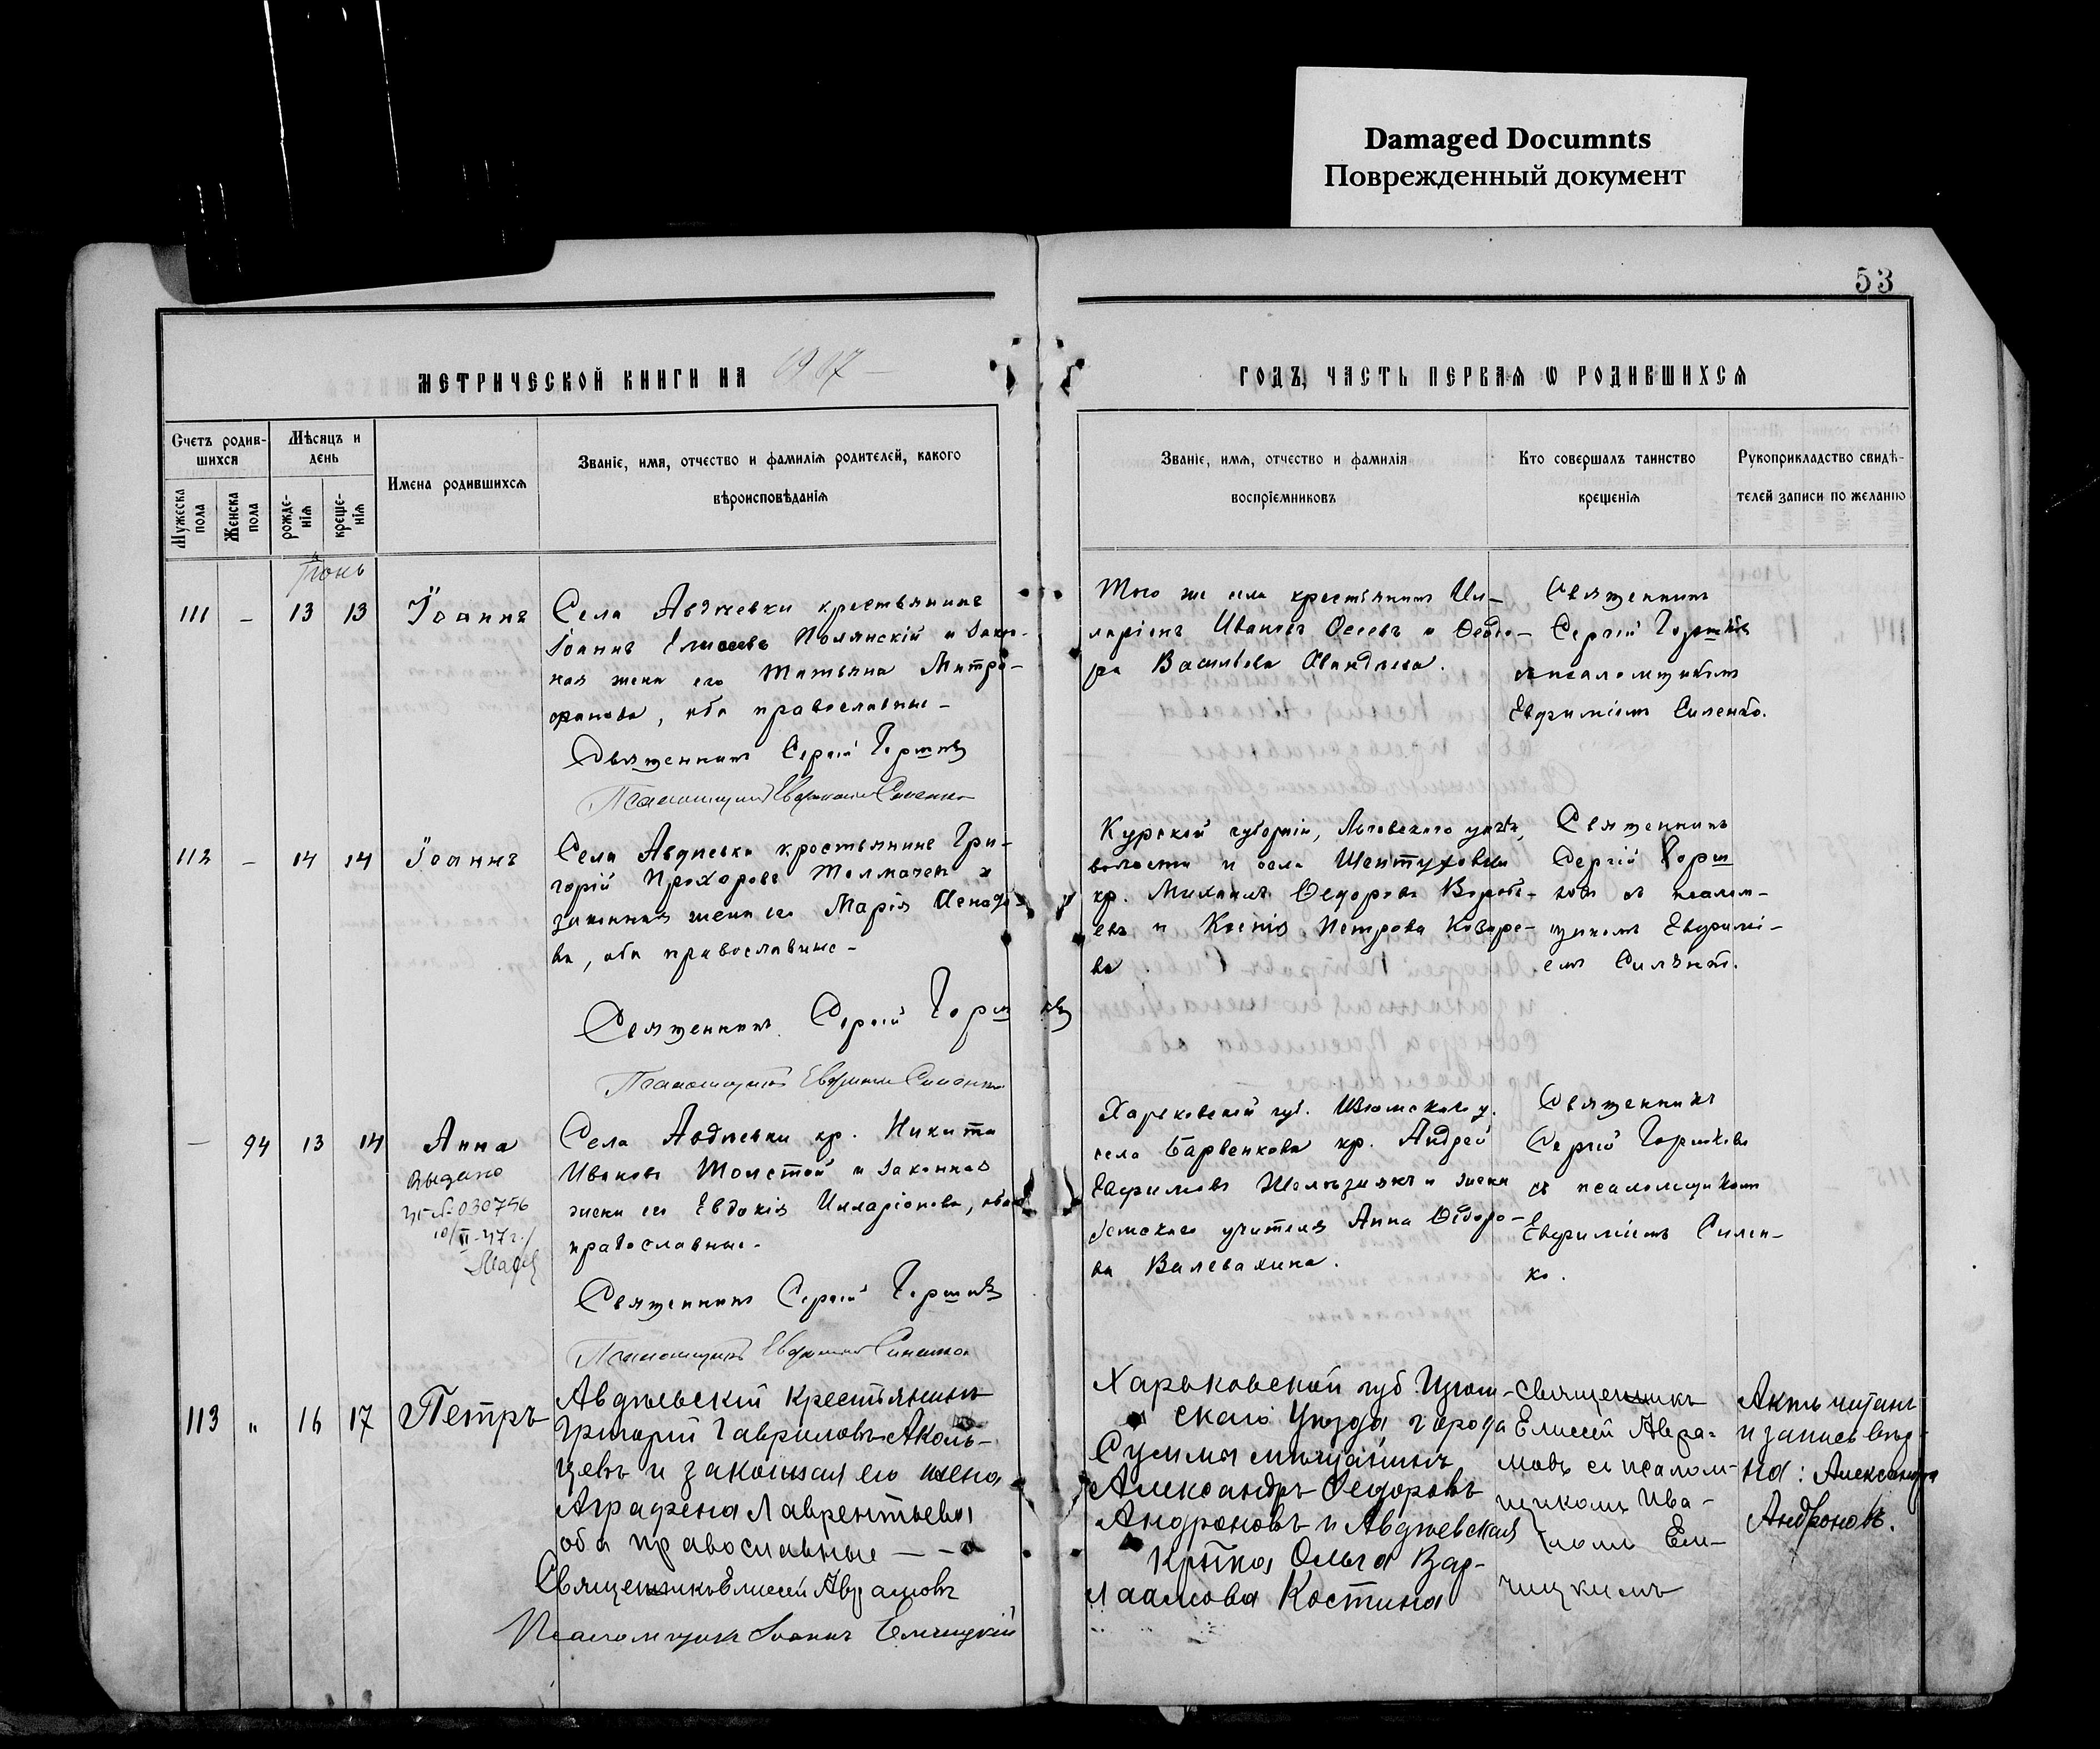 Damaged Documnts
Поврежденный документ
53
МЕТРИЧЕСКОЙ КНИГИ НА 1907
ГОДЪ, ЧАСТЬ ПЕРВАЯ Ѡ РОДИВШИХСЯ
Счетъ родив-
шихся
Мѣсяцъ и
день
Имена родившихся
Званіе, имя, отчество и фамилія родителей, какого
вѣроисповѣданія
Мужеска
пола
Женска
пола
рожде-
нія
креще-
нія
Званіе, имя, отчество и фамилія
воспріемниковъ
Кто совершалъ таинство
крещенія
Рукоприкладство свидѣ-
телей записи по желанію
Іюнь
111 - 13 13 Іоаннъ
Села Авдѣевки крестьянинъ
Іоаннъ Елисеевъ Полянскій и закон-
ная жена его Татьяна Митро-
фанова, оба православные -
Священникъ Сергій Горшковъ
Псаломщикъ Евфимій Силенко
Того же села крестьянинъ Ил-
ларіонъ Ивановъ и Ѳеодо-
ра Васильева
Священникъ
Сергій Горшковъ
съ псаломщикомъ
Евфиміемъ Силенко.
112 - 14 14 Іоаннъ
Села Авдѣевки крестьянинъ Гри-
горій Прохоровъ Толмачевъ и
законная жена его Марія
ва, оба православные -
Священникъ Сергій Горшковъ
Псаломщикъ Евфимій Силенко
Курской губерніи, Льговскаго уѣзда,
волости и села Шептуховки
кр. Михаилъ Ѳедоровъ Вороб-
евъ и Ксенія Петрова
ва
Священникъ
Сергій Горш
ковъ съ псалом-
щикомъ Евфимі-
емъ Силенко.
- 94 13 14 Анна
Села Авдѣевки кр. Никита
Ивановъ Толстой и законная
жена его Евдокія Илларіонова, оба
православные.
выдано
№ 030756
10/II-47г.
Священникъ Сергій Горшковъ
Псаломщикъ Евфимій Силенко
Харьковской губ. Изюмскаго у.
села Барвенкова кр. Андрей
Ефимовъ и жена
земскаго учителя Анна Ѳедоро-
ва
Священникъ
Сергій Горшковъ
съ псаломщикомъ
Евфиміемъ Силен-
ко.
113 " 16 17 Петръ
Авдѣевскій крестьянинъ
Григорій Гавриловъ Аколь-
цевъ и законная его жена
Аграфена Лаврентьева
оба православные - -
Священникъ Елисей Аврамовъ
Псаломщикъ Іоаннъ Елчицкій
Харьковской губ. Изюм-
скаго Уѣзда, города
Суммы мѣщанинъ
Александръ Ѳедоровъ
Андроновъ и Авдѣевская
Кр-ка Ольга Вар-
лаамова Костина
Священникъ
Елисей Авра-
мовъ съ псалом-
щикомъ Іоа-
нномъ Ел-
чицкимъ
Актъ читанъ
и запись вѣр-
на: Александръ
Андроновъ.